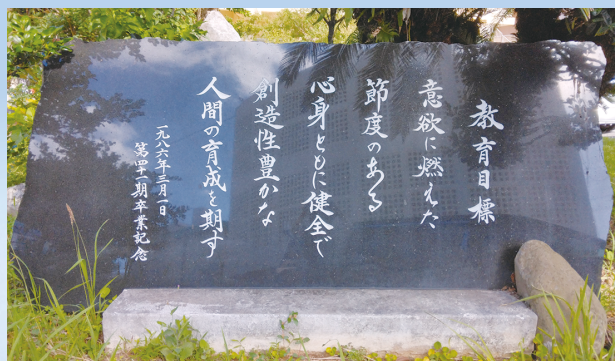 教育目標
意欲に燃えた
節度のある
心身ともに健全で
創造性豊かな
人間の育成を期す
一九八六年三月一日
第四十一期卒業記念